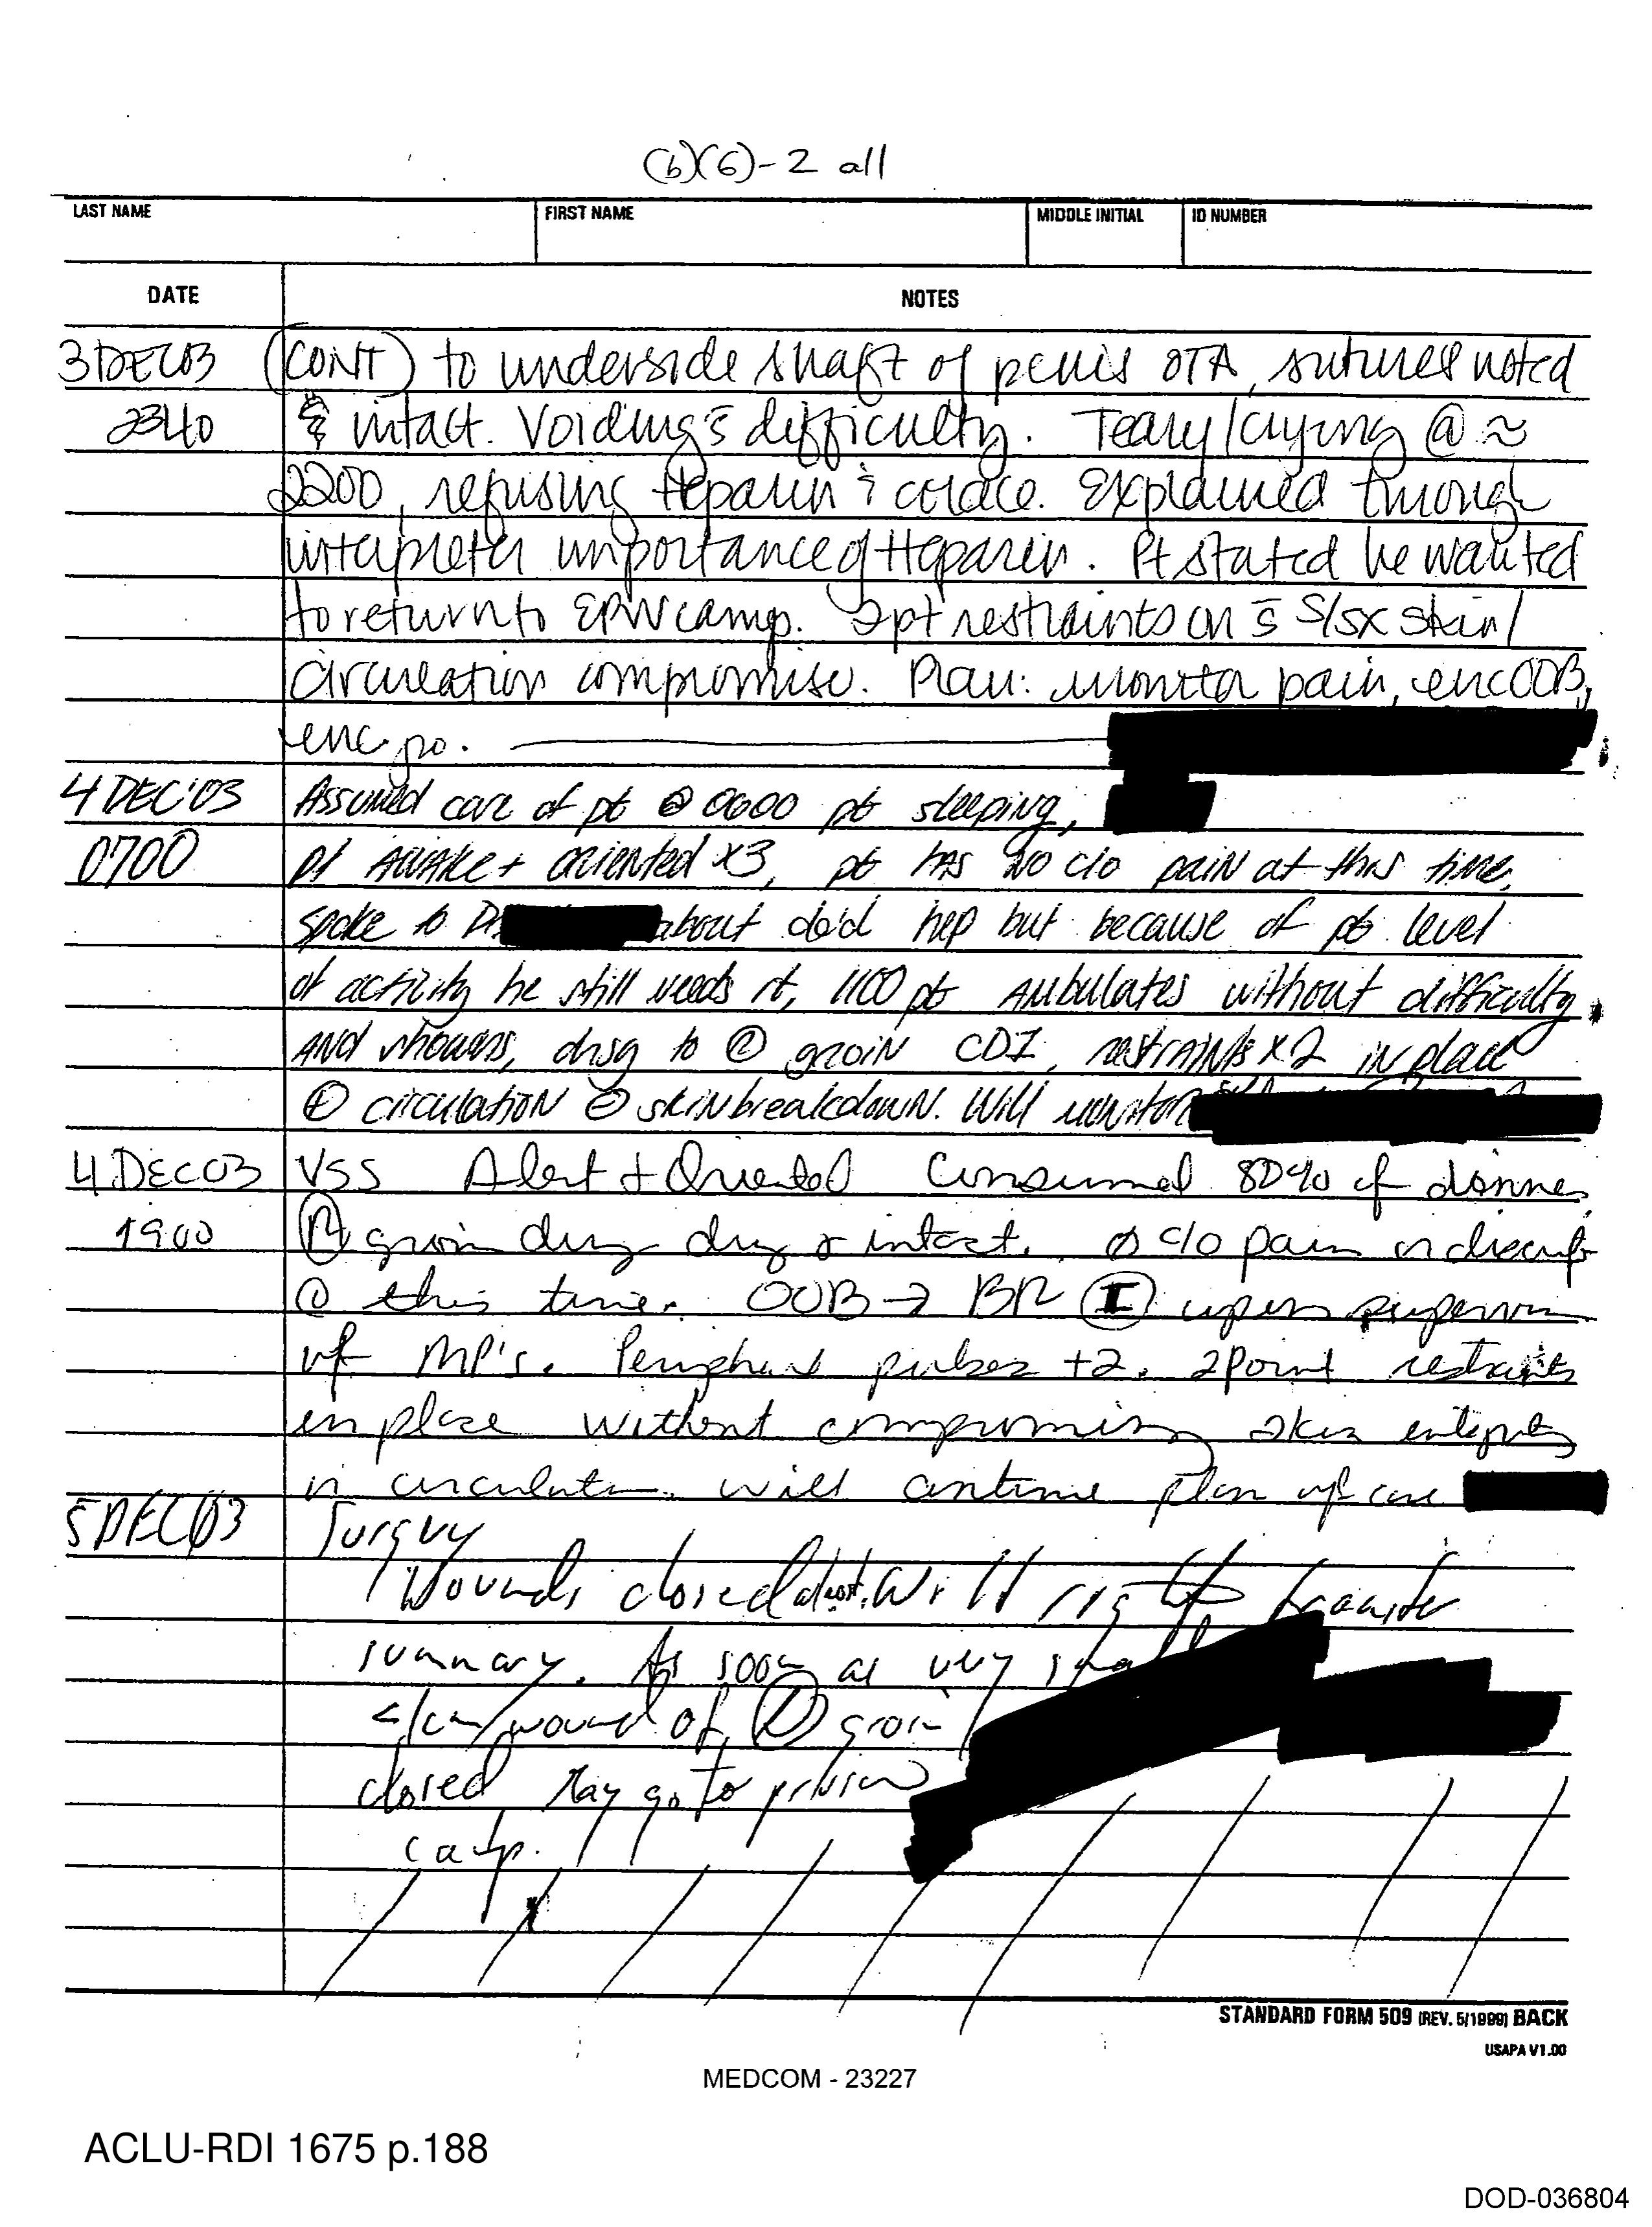 (b)(6)-2 all
LAST NAME FIRST NAME MIDDLE INITIAL ID NUMBER
DATE NOTES
3DEC03 (CONT) to underside shaft of penis OTA, sutures noted
2340 & intact. Voiding s̄ difficulty. Teary/crying @ ≈
2200, refusing Heparin & colace. Explained through
interpreter importance of Heparin. Pt stated he wanted
to return to EPW camp. 2pt restraints on s̄ S/Sx skin/
circulation compromise. Plan: monitor pain, enc OOB,
enc po.
4 DEC'03 Assumed care of pt @ 0600 pt sleeping,
0700 pt AWAKE + oriented x3, pt HAS NO c/o pain at this time,
spoke to Dr. about dc'd hep but because of pt level
of activity he still needs it, 1100 pt AMbulates without difficulty
AND showers, drsg to groin CDI, restraints x2 in place
⊕ circulation ⊖ skin breakdown. Will monitor
4 DEC03 VSS Alert + Oriented Consumed 80% of dinner
1900 groin drsg dry & intact. ø c/o pain or discomfort
@ this time. OOB → BR (I) upon supervision
of MP's. Peripheral pulses +2. 2 Point restraints
in place without compromising skin integrity
or circulation. will continue plan of care
5DEC03 Surgery
Wounds closed Will transfer
summary. As soon as very small
<1cm wound of (L) groin
closed May go to prison
camp.
STANDARD FORM 509 (REV. 5/1999) BACK
USAPA V1.00
MEDCOM - 23227
ACLU-RDI 1675 p.188
DOD-036804